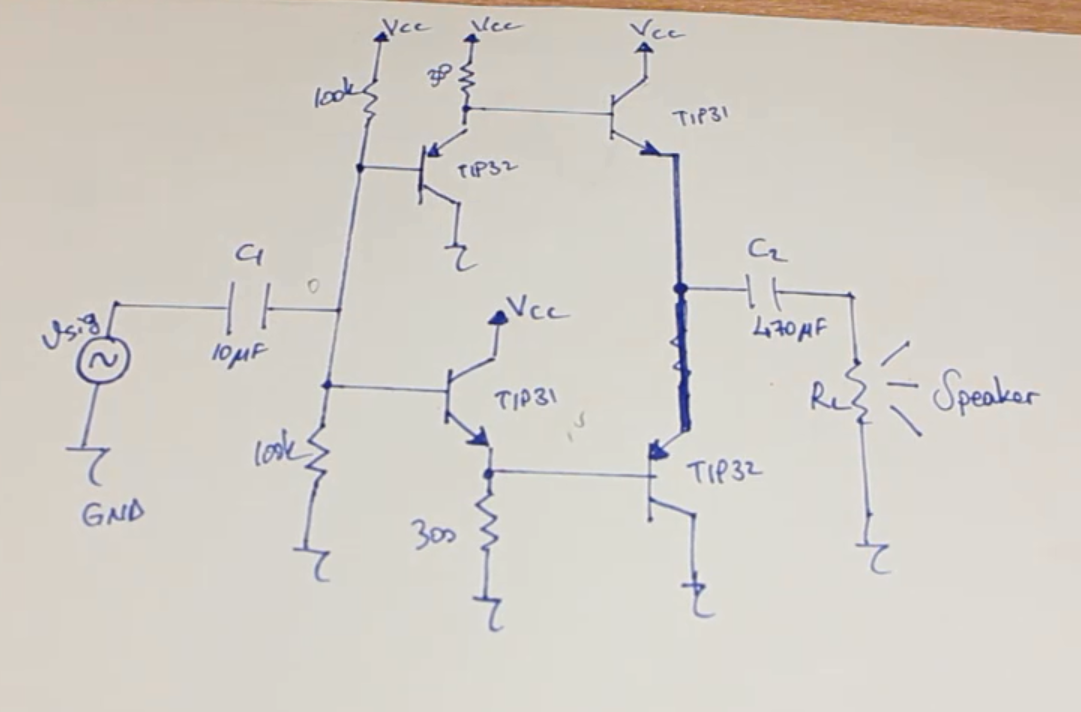 Vcc
Vcc
Vcc
100k
TIP31
TIP32
C1
Vcc
C2
Vsig
10µF
470µF
TIP31
RL
Speaker
100k
TIP32
GND
300